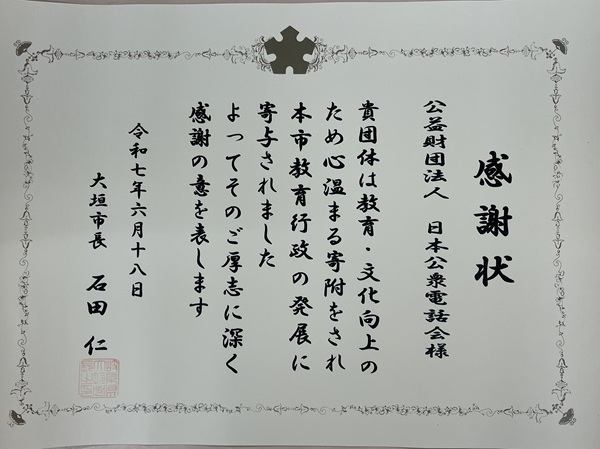 感謝状
公益財団法人　日本公衆電話会様
貴団体は教育・文化向上の
ため心温まる寄附をされ
本市教育行政の発展に
寄与されました
よってそのご厚志に深く
感謝の意を表します
令和七年六月十八日
大垣市長　石田　仁